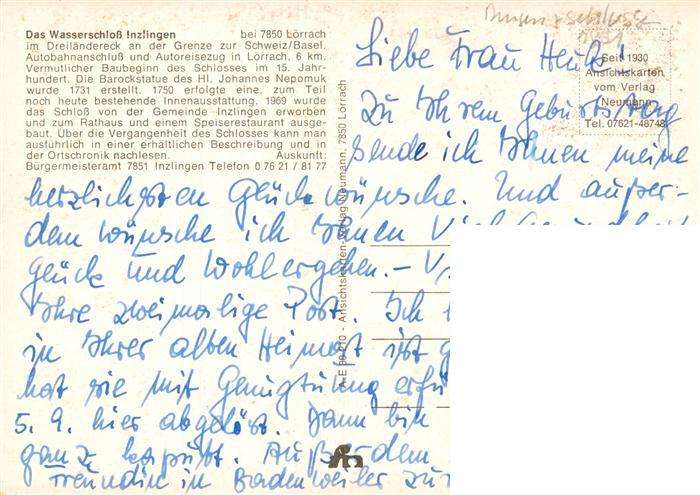 Das Wasserschloß Inzlingen bei 7850 Lörrach
im Dreiländereck an der Grenze zur Schweiz/Basel.
Autobahnanschluß und Autoreisezug in Lörrach, 6 km.
Vermutlicher Baubeginn des Schlosses im 15. Jahr-
hundert. Die Barockstatue des Hl. Johannes Nepomuk
wurde 1731 erstellt. 1750 erfolgte eine, zum Teil
noch heute bestehende Innenausstattung. 1969 wurde
das Schloß von der Gemeinde Inzlingen erworben
und zum Rathaus und einem Speiserestaurant ausge-
baut. Über die Vergangenheit des Schlosses kann man
ausführlich in einer erhältlichen Beschreibung und in
der Ortschronik nachlesen. Auskunft:
Bürgermeisteramt 7851 Inzlingen Telefon 0 76 21 / 81 77
Seit 1930
Ansichtskarten
vom Verlag
Neumann
Tel. 07621-48748
Ansichtskarten-Verlag Neumann, 7850 Lörrach
Liebe Frau
Zu Ihrem Geburtstag
sende ich Ihnen meine
herzlichsten Glückwünsche. Und außer-
dem wünsche ich Ihnen
Glück und Wohlergehen. –
Ihre zweimalige Post. Ich
in Ihrer alten Heimat ist
hat sie mit Genugtuung
5. 9. hier abgelöst. Dann bin
ganz kaputt. Außerdem
Freundin in Badenweiler